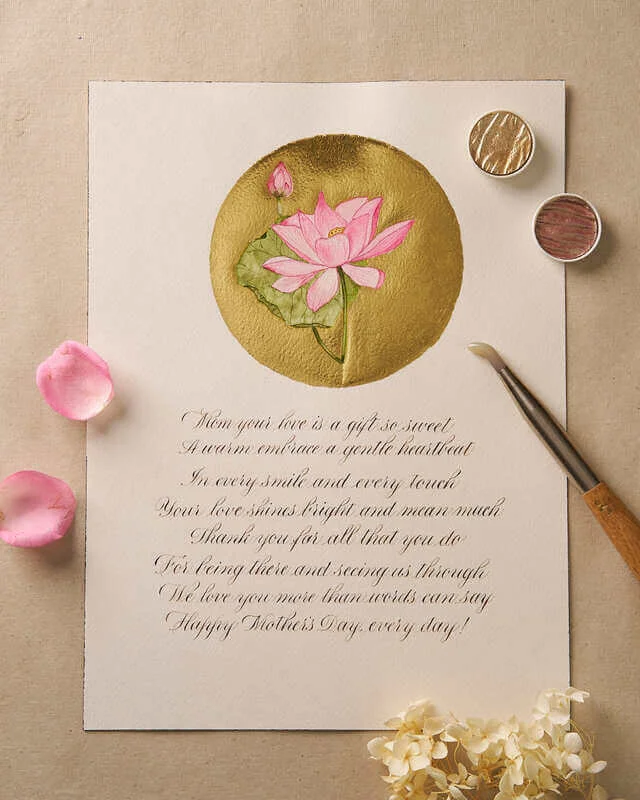 Mom your love is a gift so sweet
A warm embrace a gentle heartbeat
In every smile and every touch
Your love shines bright and mean much
Thank you for all that you do
For being there and seeing us through
We love you more than words can say
Happy Mother's Day, every day!